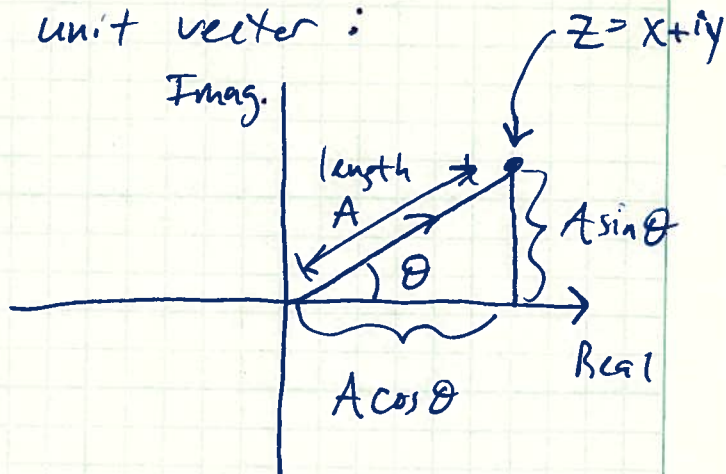 unit vector :
z = x+iy
Imag.
length
A
A sin θ
θ
Real
A cos θ